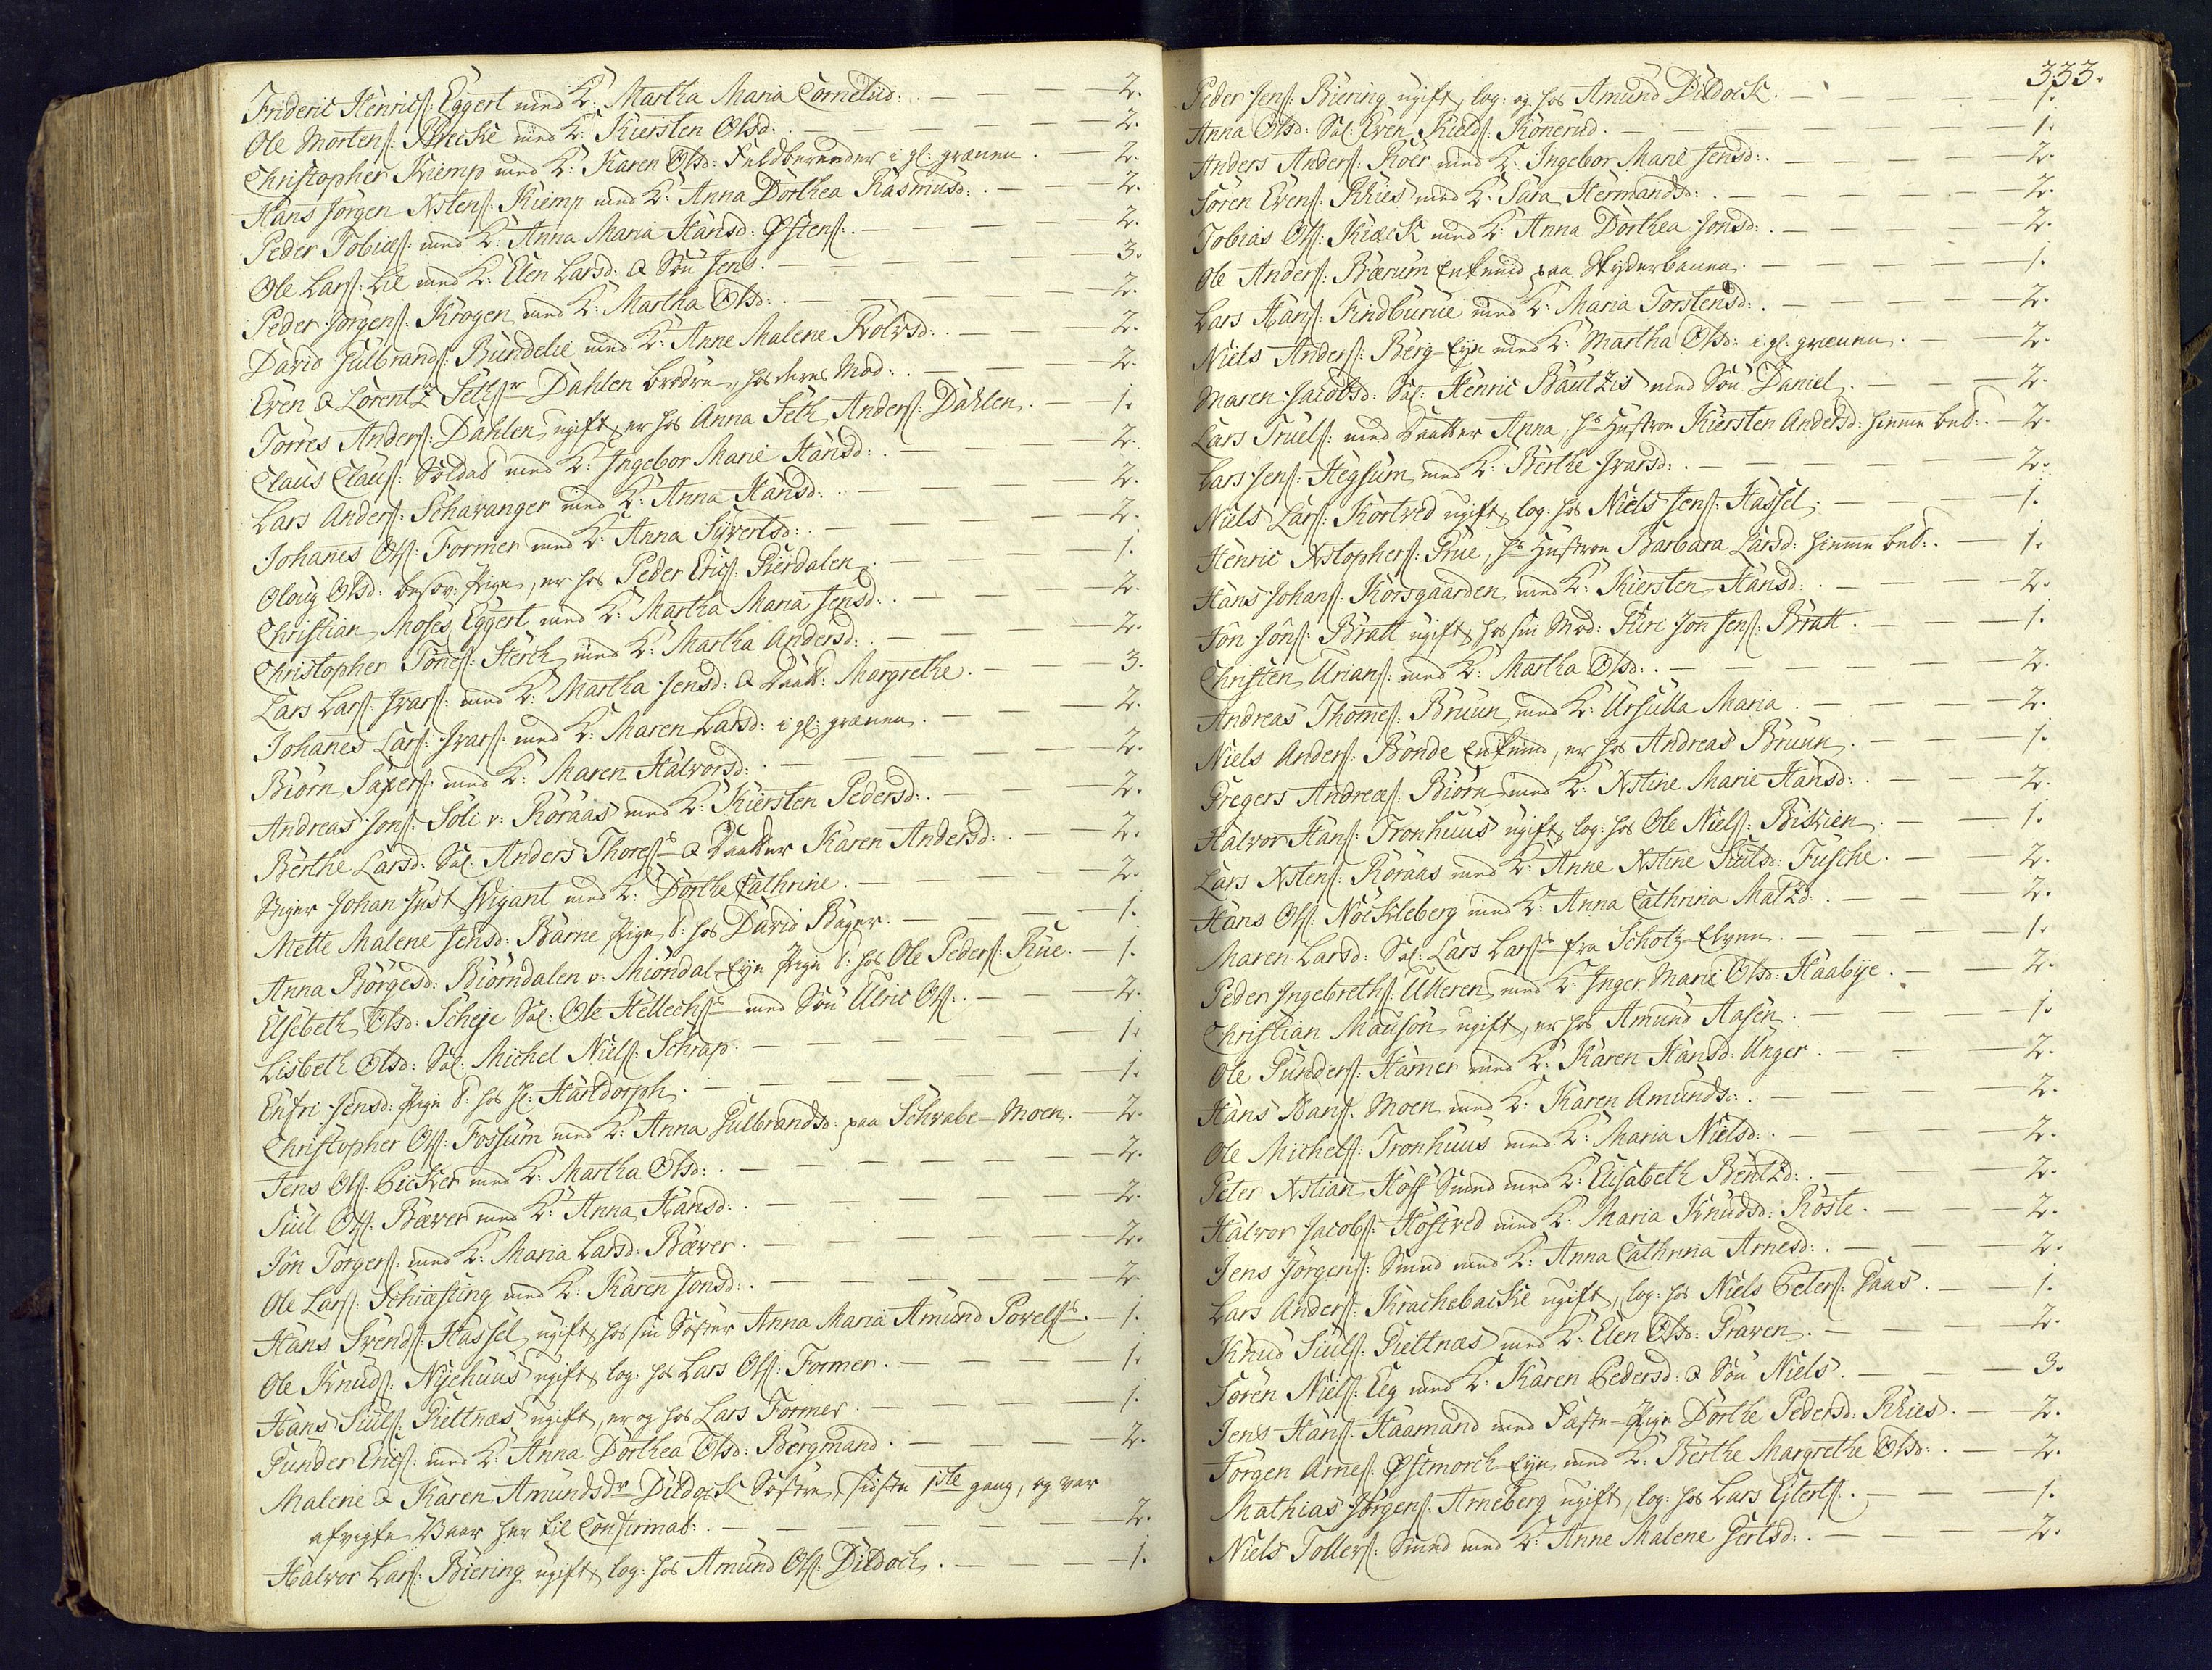 Frideric Henrics: Eggert med K: Martha Maria Cornelid: . — — 2.
Ole Mortens: Brecke med K: Kiersten Olsd: . — — — 2.
Christopher Kiemp med K: Karen Olsd: i gl: grænen . — 2.
Hans Jörgen Xstens: Kiemp med K: Anna Dorthea Rasmusd: . — — 2.
Peder Tobies: med K: Anna Maria Hansd: Østens: . — — — 2.
Ole Lars: Lie med K: Elen Larsd: & Sön Jens . — — — 3.
Peder Jörgens: Krogen med K: Martha Olsd: . — — — 2.
David Gulbrands: Bundelie med K: Anne Malene Rolvsd: . — — 2.
Even & Lorentz Seths: Dahlen brödre, hos deres Mod: . — — 2.
Torres Anders: Dahlen, ugift, er hos Anna Seth Anders: Dahlen . — 1.
Claus Claus: Soldat med K: Ingebor Marie Hansd: . — — 2.
Lars Anders: Schavanger med K: Anna Hansd: . — — — 2.
Johanes Ols: Former med K: Anna Syvertsd: . — — — 2.
Oloug Olsd: besov: Pige, er hos Peder Erics: Gierdalen . — — 1.
Christian Moses Eggert med K: Martha Maria Jensd: . — — 2.
Christopher Tönes: Sterch med K: Martha Andersd: . — — 2.
Lars Lars: Ivars: med K: Martha Jensd: & Daatt: Margrethe . — 3.
Johanes Lars: Ivars: med K: Maren Larsd: i gl: grænen . — — 2.
Biörn Saxes: med K: Maren Halvorsd: . — — — 2.
Andreas Jons: Soli v: Röraas med K: Kiersten Pedersd: . — — 2.
Berthe Larsd: Sal: Anders Thores: & Daatter Karen Andersd: . — — 2.
Johan Just Wigant med K: Dorthe Cathrine . — — 2.
Mette Malene Jensd: Barne Pige d: hos David Bager . — — — 1.
Anna Börgesd: Biörndalen v: Miöndal-Eje Pige d: hos Ole Peders: Rue . — 1.
Elsebeth Olsd: Scheje Sal: Ole Hellechs: med Sön Ulric Ols: . — — 2.
Lisbeth Olsd: Sal: Michel Niels: Schrap . — — — — 1.
Enfri Jensd: Pige d: hos Hr: Hartdorph . — — — — 1.
Christopher Ols: Fossum med K: Anna Gulbrandsd: paa Schrabe-Moen . — 2.
Jens Ols: Picker med K: Martha Olsd: . — — — — 2.
Siul Ols: Bæver med K: Anna Hansd: . — — — — 2.
Jon Torgers: med K: Maria Larsd: Bæver . — — — — 2.
Ole Lars: Schiæsting med K: Karen Jonsd: . — — — — 2.
Hans Svends: Hassel, ugift, hos sin Söster Anna Maria Amund Povels: . — 1.
Ole Knuds: Nyehuus ugift, log: hos Lars Ols: Former . — — — 1.
Hans Siuls: Giettnæs ugift, er og hos Lars Former . — — — 1.
Gunder Erics: med K: Anna Dorthea Olsd: Bergmand . — — — 2.
Malene & Karen Amundsdr Dildock Söstre, sidste 1ste gang, og var
her til Confirmat: . — — — — 2.
Halvor Lars: Biering ugift, log: hos Amund Ols: Dildoch . — — — 1.
333.
Peder Jens: Biering ugift, log: og hos Amund Dildock . — — — 1.
Anna Olsd: Sal: Even Kields: Könerud . — — — — 1.
Anders Anders: Roer med K: Ingebor Marie Jensd: . — — — 2.
Sören Evens: Rhies med K: Sara Hermandsd: . — — — 2.
Tobias Ols: Kiæck med K: Anna Dorthea Jonsd: . — — — 2.
Ole Anders: Bærum Enkemd paa Skyderbanen . — — — 1.
Lars Hans: Findburue med K: Maria Torstensd: . — — — 2.
Niels Anders: Berg-Eje med K: Martha Olsd: i gl: grænen . — — 2.
Maren Jacobsd: Sal: Henric Bautzis med Sön Daniel . — — — 2.
Lars Truels: med Daatter Anna, hs Hustroe Kiersten Andersd: hieme bet: . — 2.
Lars Jens: Hegsum, med K: Berthe Ivarsd: . — — — 2.
Niels Lars: Kortved ugift, log: hos Niels Jens: Hassel . — — 1.
Henric Xstophers: Grue, hs Hustroe Barbara Larsd: hieme bet: . — 1.
Hans Johans: Korsgaarden med K: Kiersten Hansd: . — — — 2.
Jon Jöns: Bratt ugift, hos sin Mod: Guri Jon Jens: Bratt . — — 1.
Christen Urians: med K: Martha Olsd: . — — — — 2.
Andreas Thomes: Bruun, med K: Ursulla Maria . — — — 2.
Niels Anders: Bonde Enkemd, er hos Andreas Bruun . — — — 1.
Gregers Andreæs: Biörn med K: Xstine Marie Hansd: . — — — 2.
Halvor Hans: Tronhuus ugift, log: hos Ole Niels: Biskien . — — 1.
Lars Xstens: Röraas med K: Anne Xstine Siulsd: Fusche . — — 2.
Hans Ols: Nöckleberg med K: Anna Cathrina Matzd: . — — 2.
Maren Larsd: Sal: Lars Lars: fra Scholz-Elven . — — — 1.
Peder Ingebreths: Ulleren med K: Inger Marie Olsd: Haabye . — 2.
Christian Mauson ugift, er hos Amund Aasen . — — — 1.
Ole Gunders: Hamer med K: Karen Hansd: Unger . — — — 2.
Hans Hans: Moen med K: Karen Amundsd: . — — — 2.
Ole Michels: Tronhuus med K: Maria Nielsd: . — — — 2.
Peter Xstian Hoff Smed med K: Elisabeth Bentzd: . — — 2.
Halvor Jacobs: Hostved med K: Maria Knudsd: Röste . — — 2.
Jens Jörgens: Smed med K: Anna Cathrina Arnesd: . — — 2.
Lars Anders: Krachebacke ugift, log: hos Niels Peters: Paus . — 1.
Knud Siuls: Giettnæs med K: Elen Olsd: Graven . — — — 2.
Sören Niels: Eeg med K: Karen Pedersd: & Sön Niels . — — 3.
Jens Hans: Haamand med Fæste-Pige Dorthe Pedersd: Rhies . — 2.
Jörgen Arnes: Østmorch-Eje med K: Berthe Margrethe Olsd: . — 2.
Mathias Jörgens: Arneberg ugift, log: hos Lars Eylerts: . — — 1.
Niels Tollevs: Smed med K: Anne Malene Gertsd: . — — — 2.